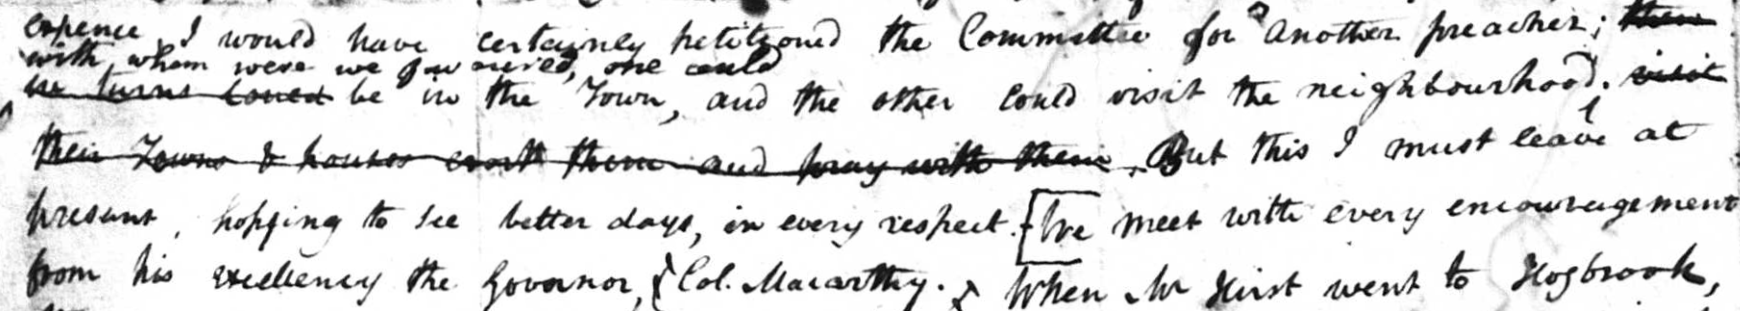 expence, I would have certainly petitioned the Committee for another preacher; then
with whom were we favoured, one could
in turns could be in the Town, and the other could visit the neighbourhood. visit
their Towns & houses exort them and pray with them. But this I must leave at
present, hopping to see better days, in every respect. [We meet with every encouragement
from his excellency the Governor, Col. Macarthy. When Mr Hirst went to Hogbrook,